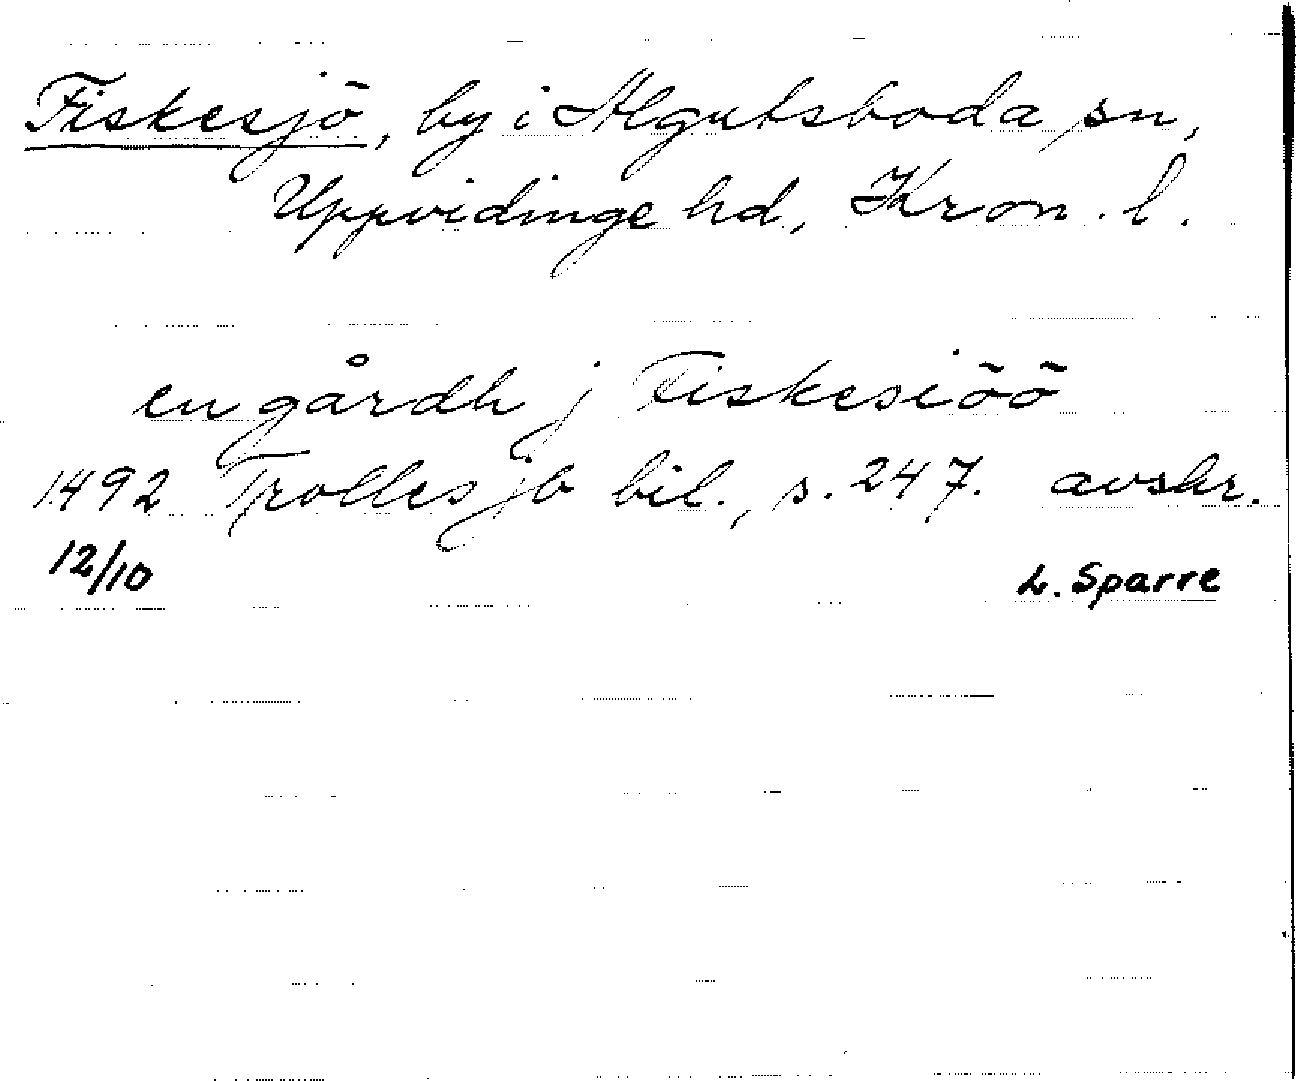 Fiskesjö, by i Algutsboda sn,
Uppvidinge hd, Kron. l.
en gårdh j Fiskesiöö
1492 Trolles jb bil., s. 247. avskr.
12/10 L. Sparre